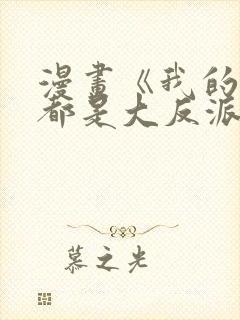 漫畫《我的
都是大反派
慕之光